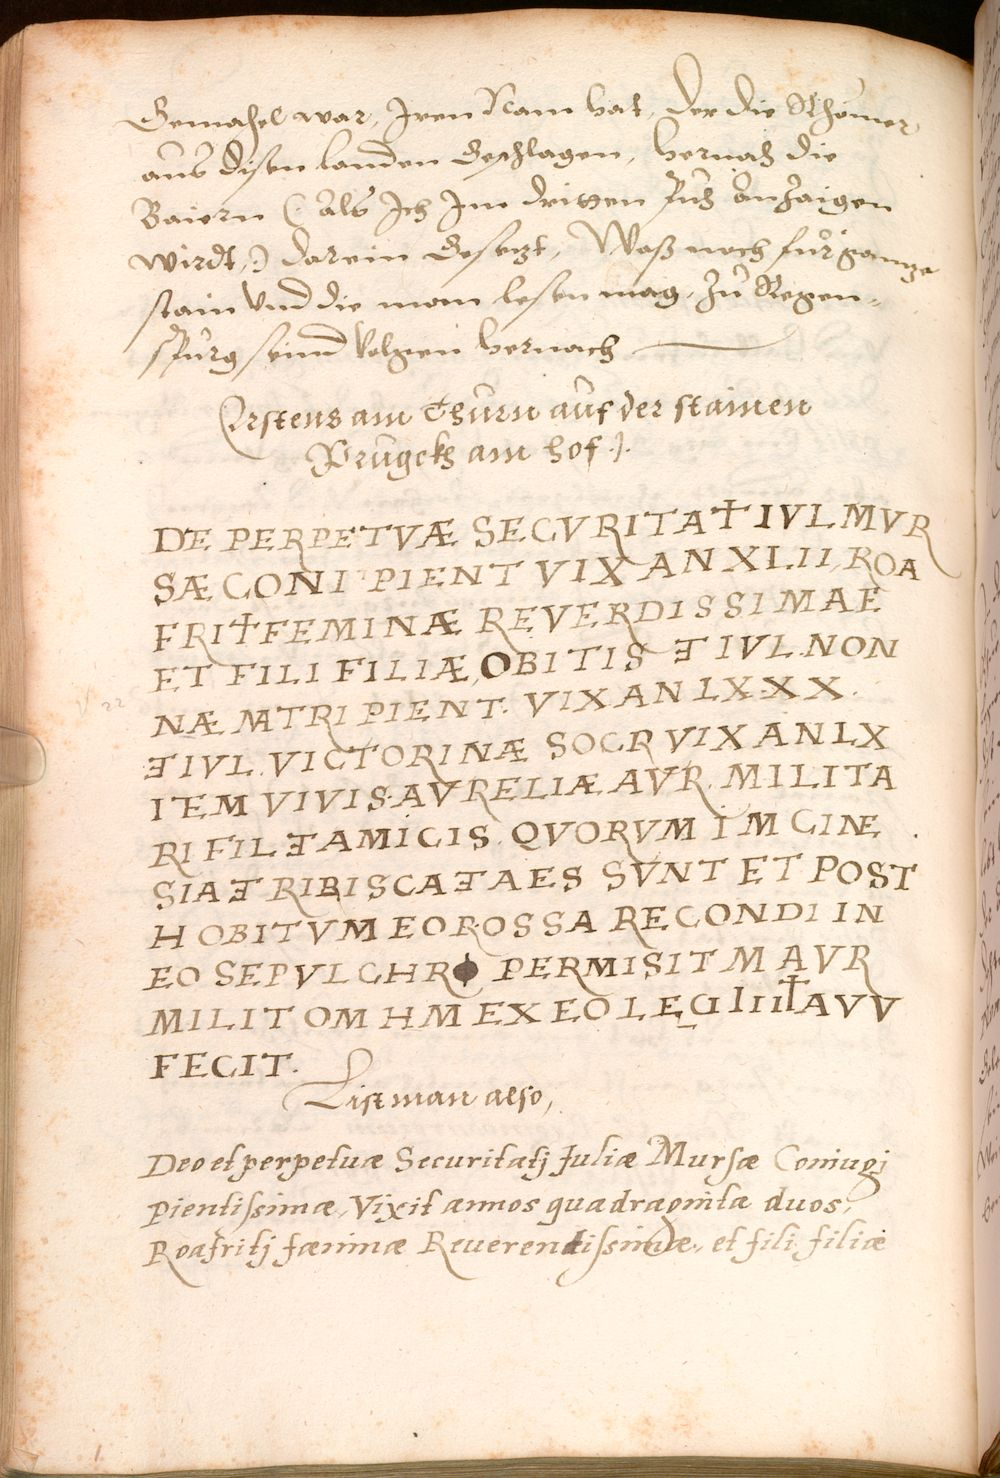 Gemahel war, Iren Nam hat, der die Rhömer
aus disen landen geschlagen, hernach die
Baiern (: als Ich Im dritten Puch anzaigen
wirdt :) darein gesetzt, Waß noch für gantze
stain vnd die man lesen mag, zu Regen-
spurg seind volgen hernach
Erstens am Thurn auf der stainen
Prugckh am hof :/.
DE PERPETVÆ SECVRITA† IVL MVR
SÆ CONI PIENT VIX AN XLII, ROA
FRI† FEMINÆ REVERDISSIMAE
ET FILI FILIÆ, OBITIS ƎT IVL. NON
NÆ MATRI PIENT. VIX AN LX:XX.
ƎT IVL. VICTORINÆ SOCR VIX AN LX
ITEM VIVIS. AVRELIÆ AVR. MILITA
RI FIL ƎT AMICIS. QVORVM IM GINE
SIA ƎT RIBI SCA ƎT AES SVNT ET POST
HOBITVM EOR. OSSA RECONDI IN
EO SEPVLCHRO PERMISIT M AVR
MILIT OM HM EX EO LEG IIII† AVV
FECIT.
List man also,
Deo et perpetuæ Securitatj Juliæ Mursæ Coniugj
pientissimæ, Vixit annos quadraginta duos,
Roafritj fæminæ Reuerendissimæ, et fili filiæ